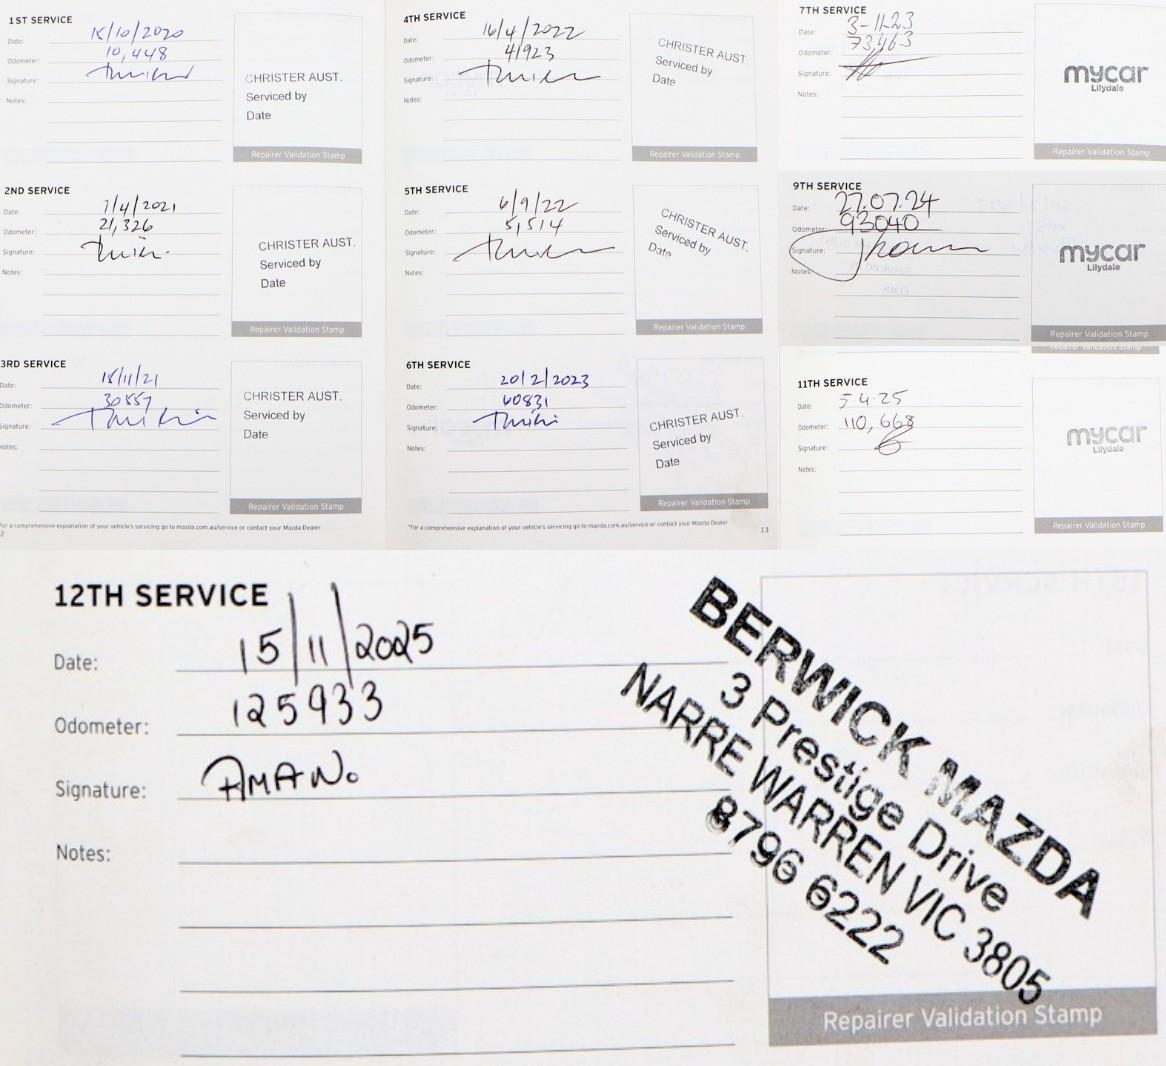 1ST SERVICE
Date: 15/10/2020
Odometer: 10,448
Signature:
Notes:
CHRISTER AUST.
Serviced by
Date
Repairer Validation Stamp
2ND SERVICE
Date: 7/4/2021
Odometer: 21,326
Signature:
Notes:
CHRISTER AUST.
Serviced by
Date
Repairer Validation Stamp
3RD SERVICE
Date: 18/11/21
Odometer: 30557
Signature:
Notes:
CHRISTER AUST.
Serviced by
Date
Repairer Validation Stamp
For a comprehensive explanation of your vehicle's servicing go to mazda.com.au/service or contact your Mazda Dealer
2
4TH SERVICE
Date: 16/4/2022
Odometer: 41923
Signature:
Notes:
CHRISTER AUST.
Serviced by
Date
Repairer Validation Stamp
5TH SERVICE
Date: 6/9/22
Odometer: 51,514
Signature:
Notes:
CHRISTER AUST.
Serviced by
Date
Repairer Validation Stamp
6TH SERVICE
Date: 20/2/2023
Odometer: 60831
Signature:
Notes:
CHRISTER AUST.
Serviced by
Date
Repairer Validation Stamp
*For a comprehensive explanation of your vehicle's servicing go to mazda.com.au/service or contact your Mazda Dealer
13
7TH SERVICE
Date: 3-11-23
Odometer: 73,463
Signature:
Notes:
mycar
Lilydale
Repairer Validation Stamp
9TH SERVICE
Date: 27.07.24
Odometer: 93040
Signature:
Notes:
mycar
Lilydale
Repairer Validation Stamp
Repairer Validation Stamp
11TH SERVICE
Date: 5.4.25
Odometer: 110,668
Signature:
Notes:
mycar
Lilydale
Repairer Validation Stamp
12TH SERVICE
Date: 15/11/2025
Odometer: 125933
Signature: AMAN.
Notes:
BERWICK MAZDA
3 Prestige Drive
NARRE WARREN VIC 3805
8796 6222
Repairer Validation Stamp